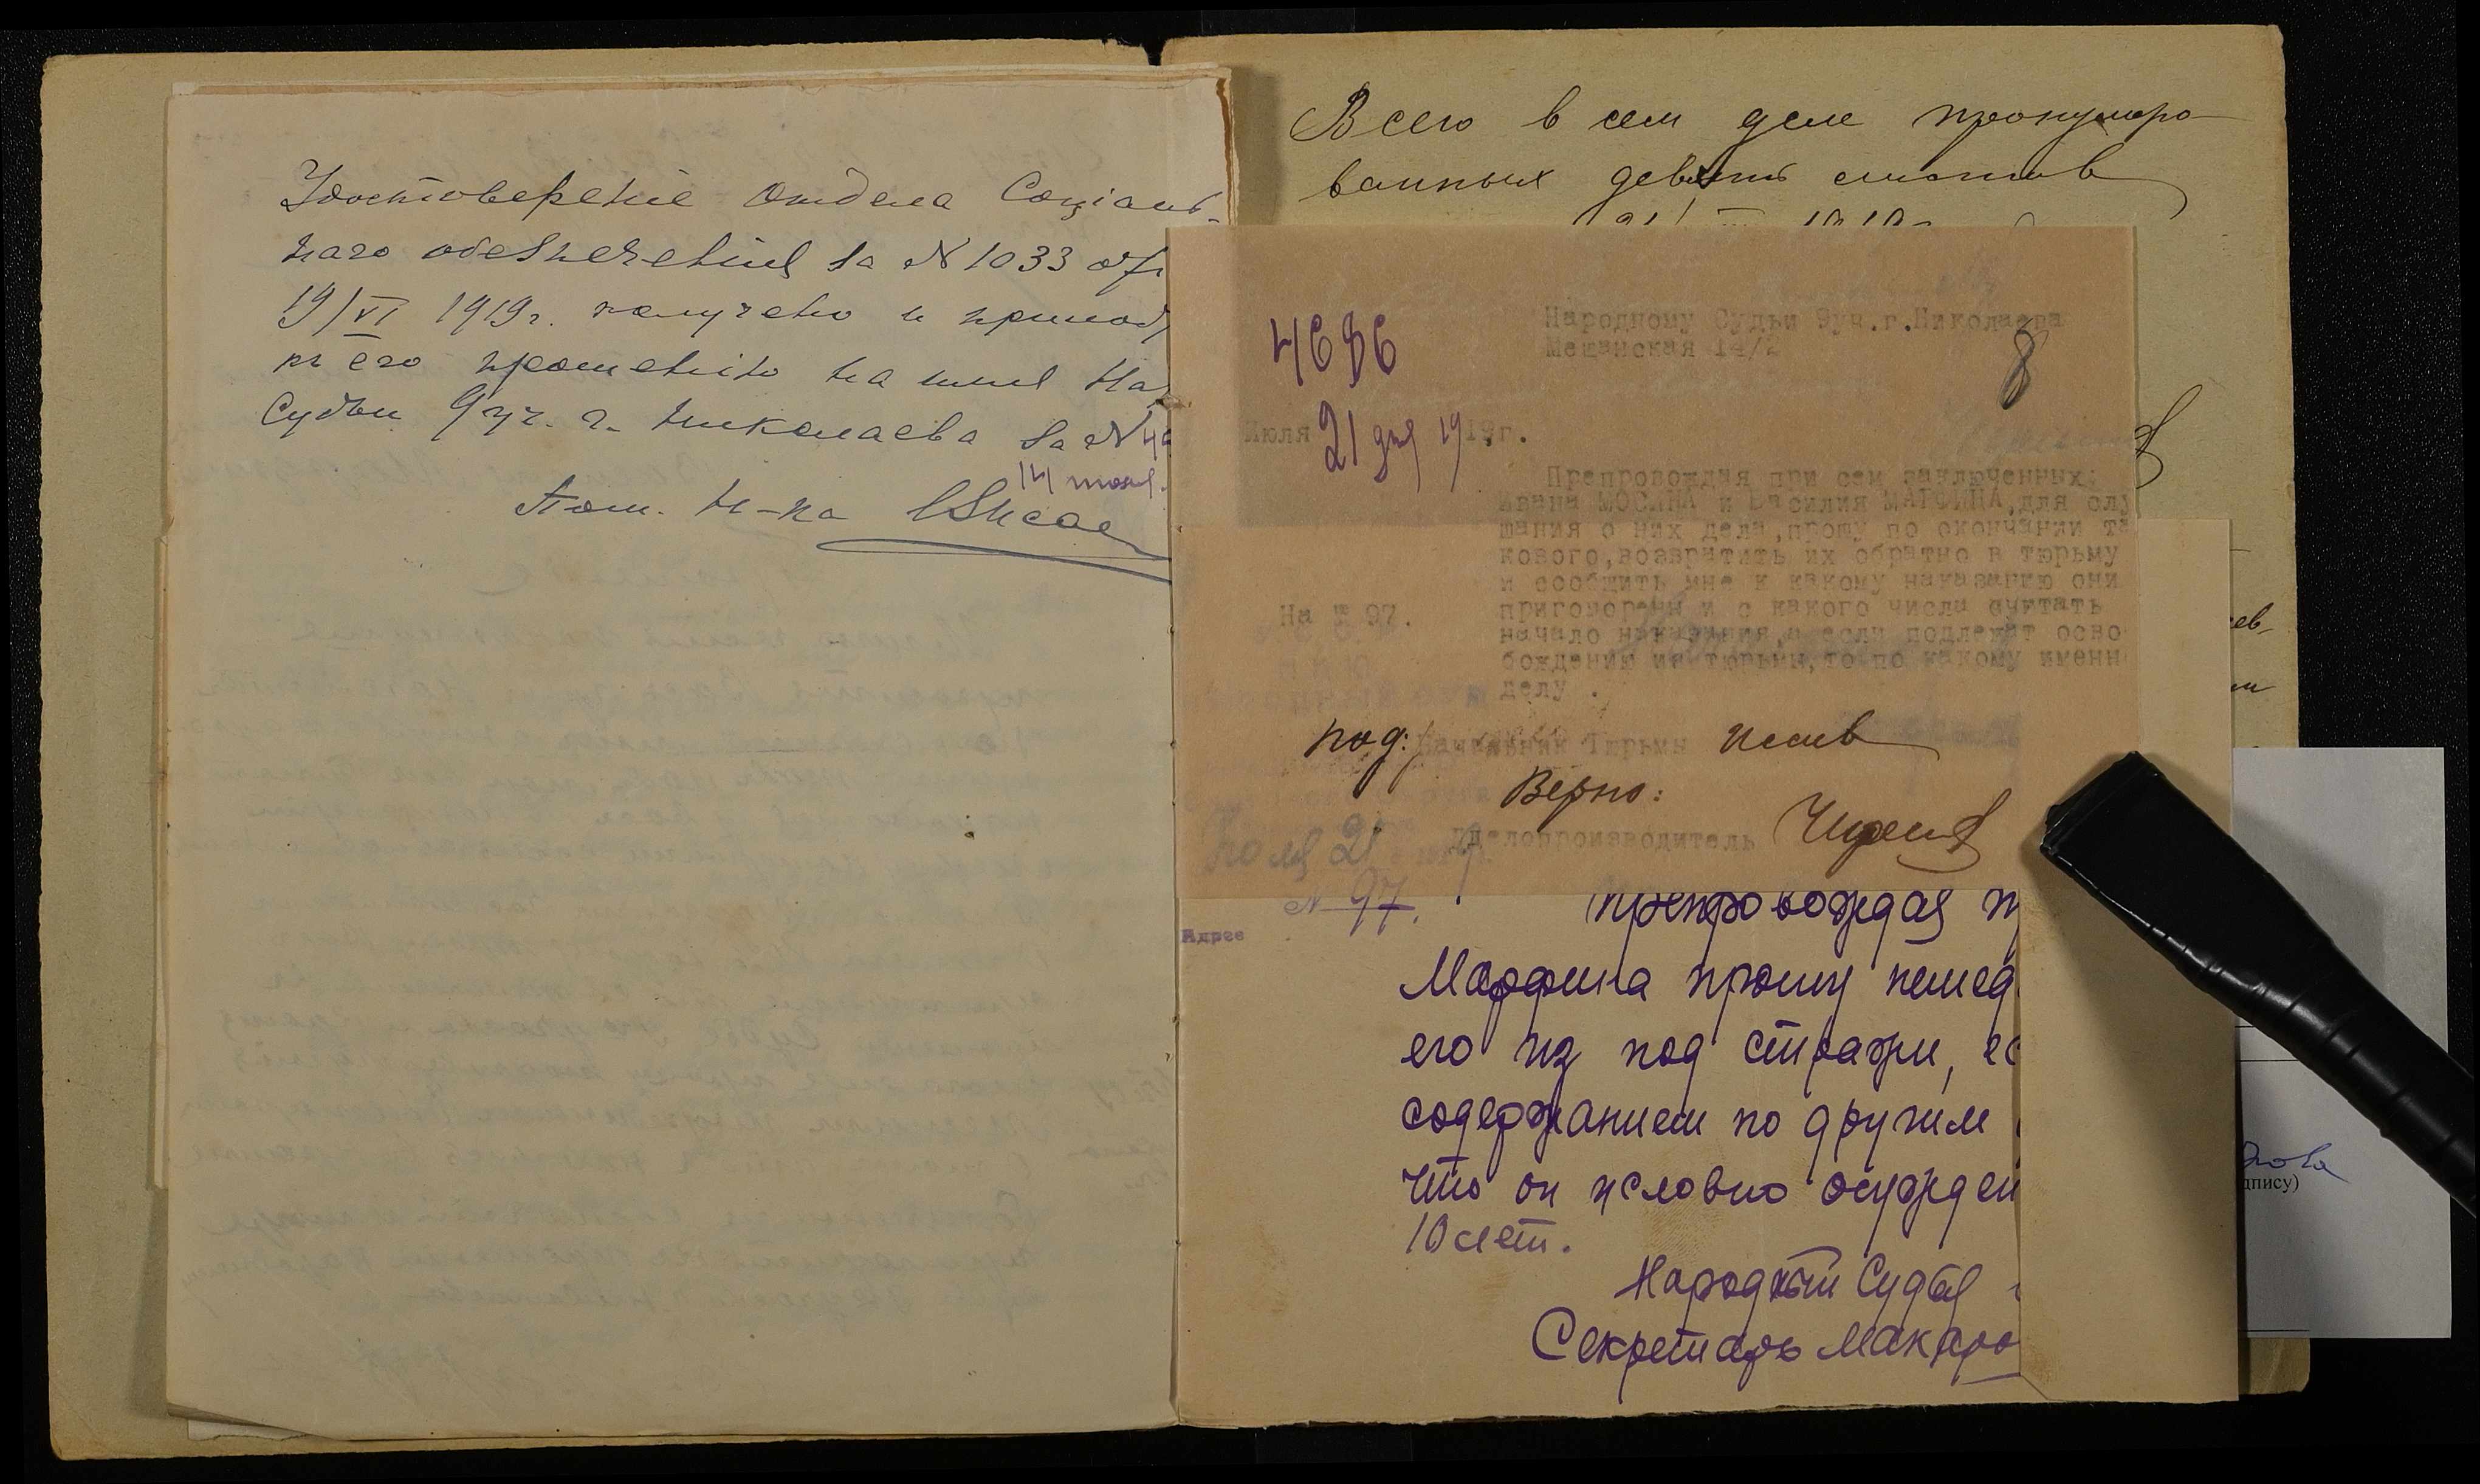 Удостоверенiе Отдела Соцiаль-
наго обезпеченiя за № 1033 отъ
19/VI 1919г. получено и
къ его прошенiю на имя На
Судьи 9 уч. г. Николаева за №
14 июля.
Пом. Н-ка
Всего в сем деле пронумеро-
ванных девять листов
4686
Народному Судьи 9уч.г.Николаева
Мещанская 14/2
8
Июля 21 дня 1919г.
Препровождая при сем заключенных:
Ивана МОСИНА и Василия МАРФИНА,для слу
шания о них дела,прошу по окончании та
кового,возвратить их обратно в тюрьму
и сообщить мне к какому наказанию они
На № 97.
приговорены и с какого числа считать
начало наказания,а если подлежат осво
бождению из тюрьмы,то по какому именн
делу .
под: Начальник Тюрьмы Исаев
Верно:
Делопроизводитель
Июля 21
№ 97.
Адрес
Препровождая п
Марфина прошу немед
его из под стражи, ес
содержанием по другим
что он условно осужден
10 лет.
Народный Судья
Секретарь Макаро
дпису)